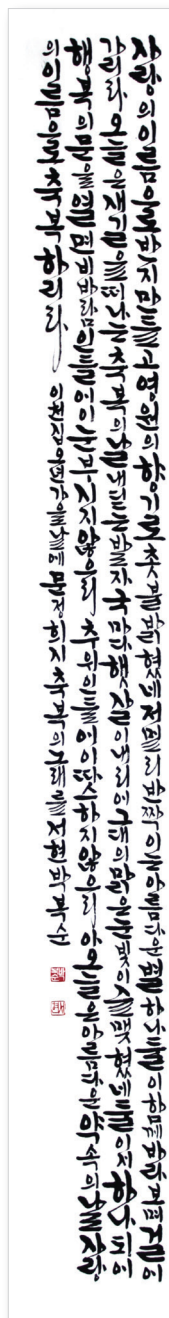 사랑의 이름으로 반지 만들고 영원의 향기로 촛불 밝혔네 저 멀리 반짝이는 아름다운 별 하나 둘이 함께 바라보며 걸어
가리라 오늘은 새 길을 떠나는 축복의 날 내딛는 발자국마다 햇살이 내리어 그대의 맑은 눈빛 이슬 맺혔네 둘이서 하나 되어
행복의 문을 열면 비바람인들 어이 눈부시지 않으리 추위인들 어이 따스하지 않으리 아 오늘은 아름다운 약속의 날 사랑
의 이름으로 축복하리라 이천십오년 가을날에 문정희 시 축복의 노래를 저현 박복순